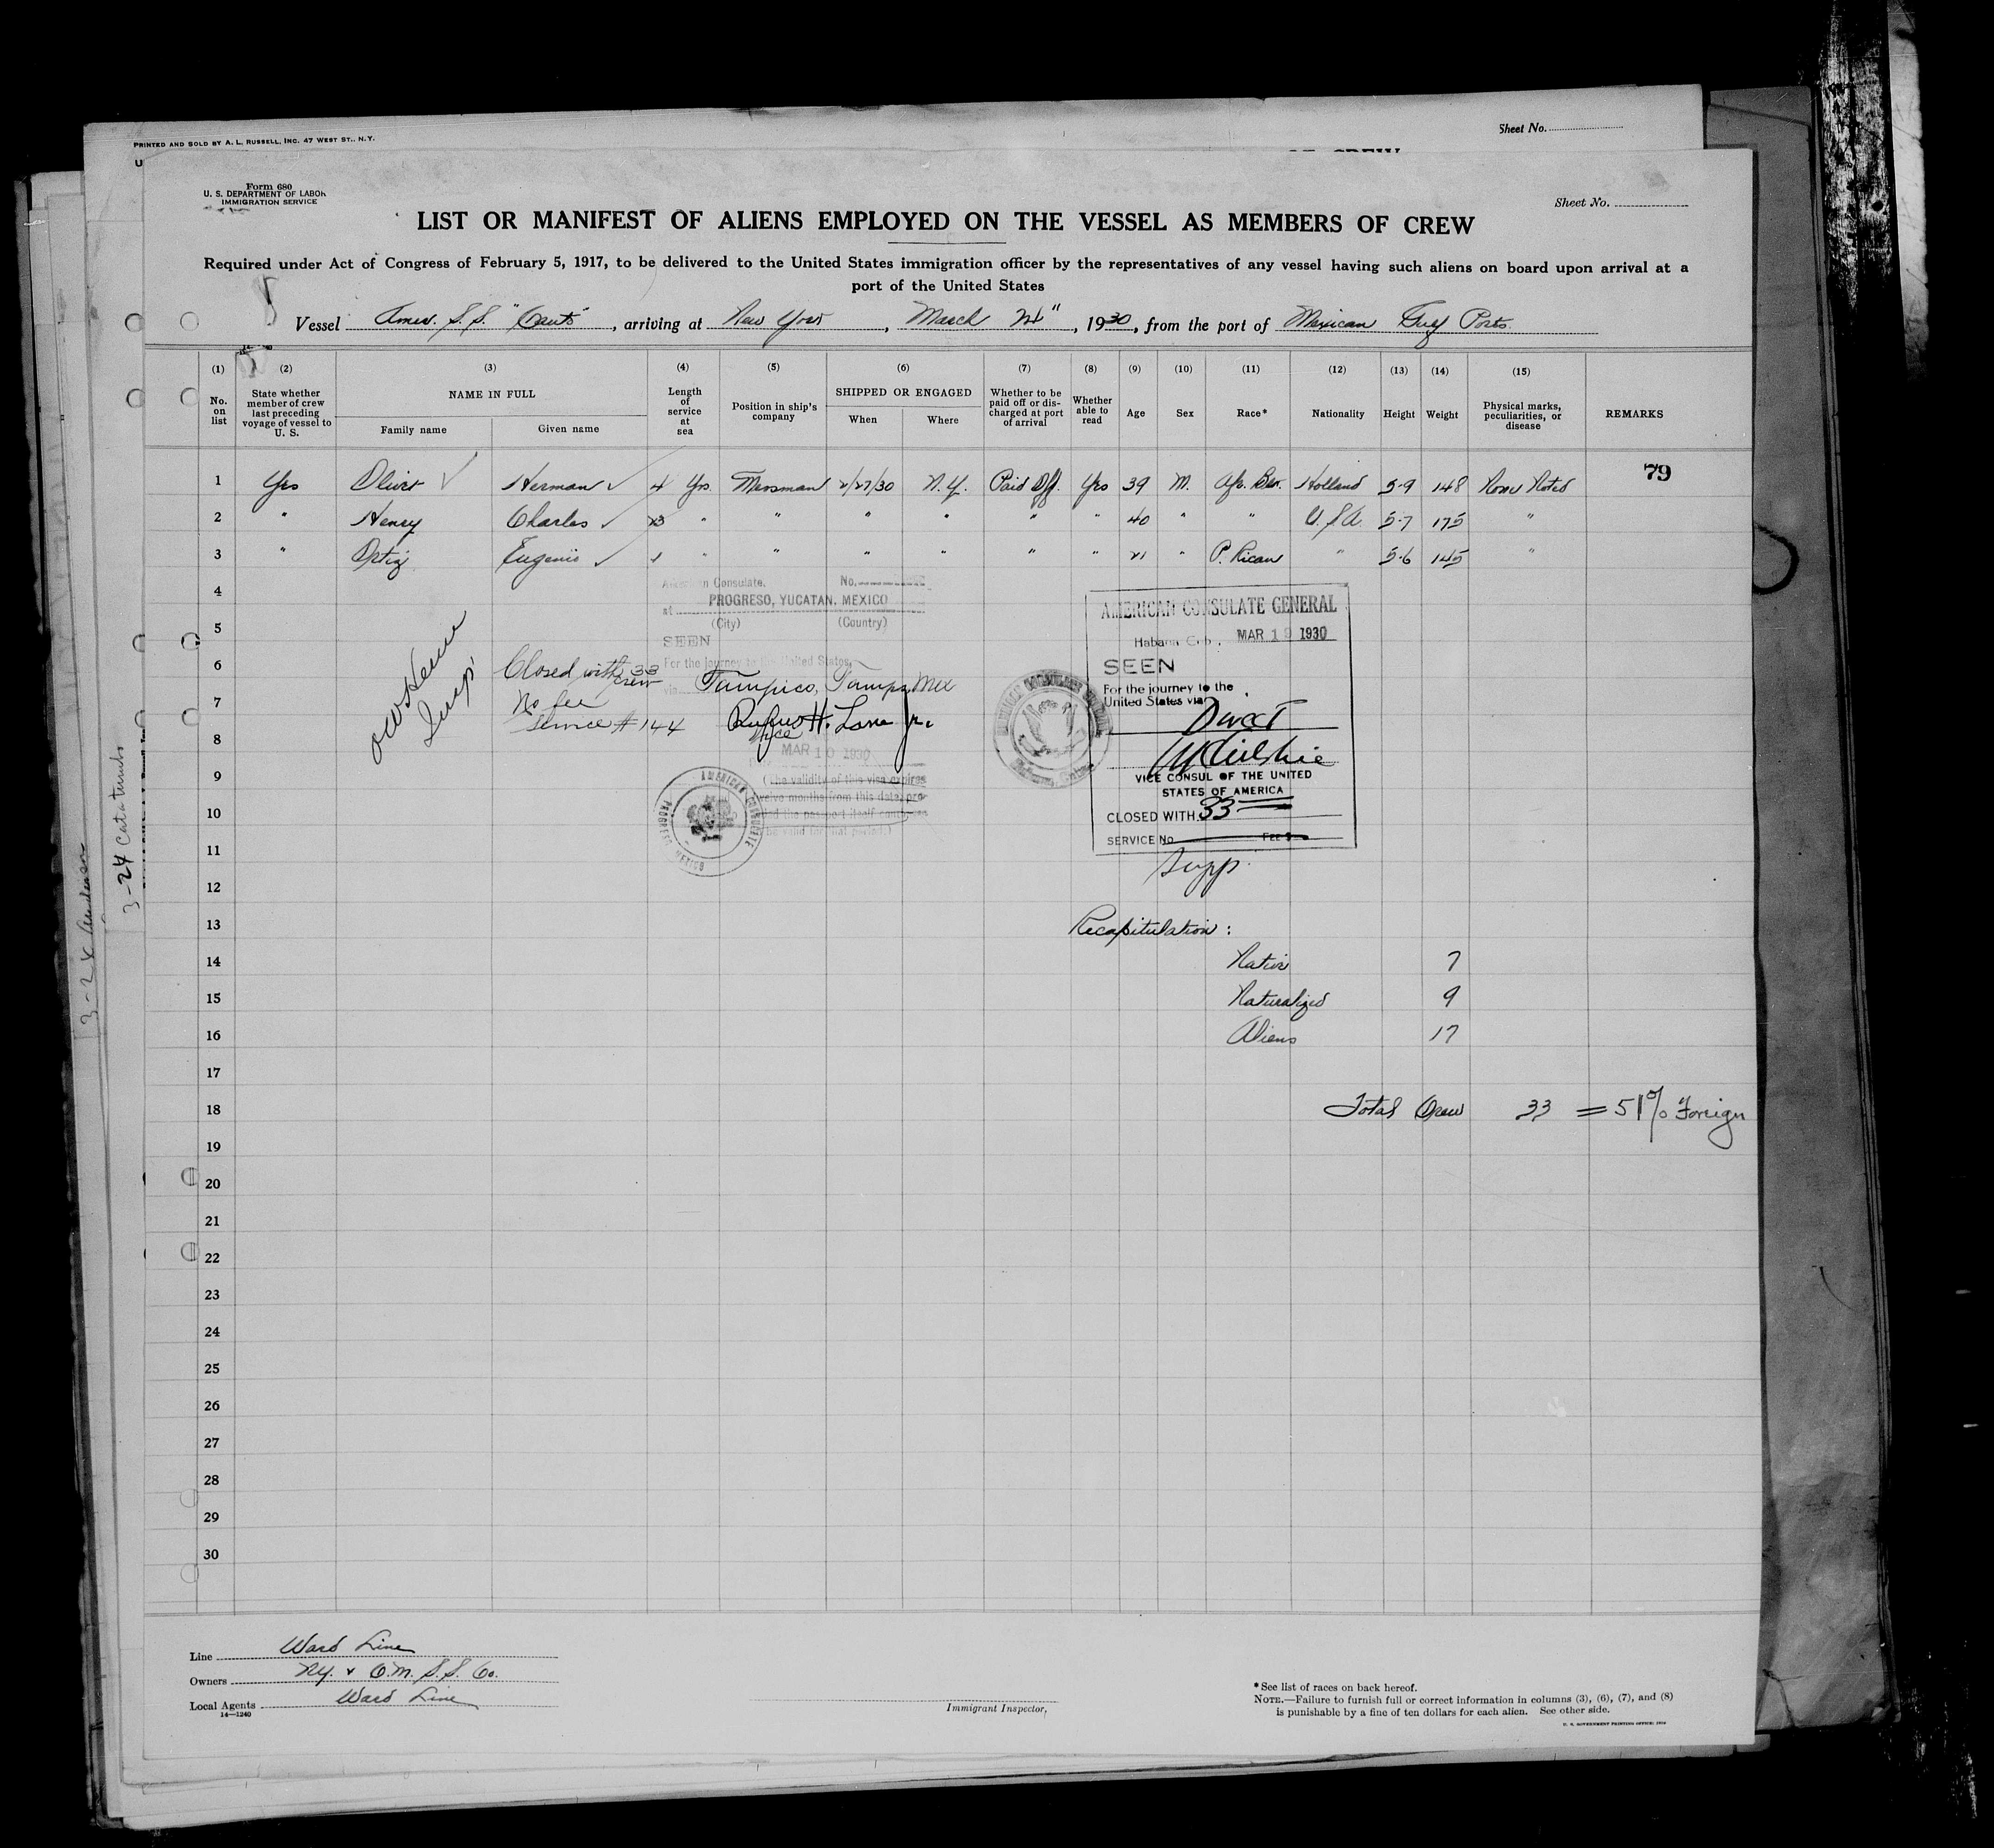 PRINTED AND SOLD BY A. L. RUSSELL, INC. 47 WEST ST., N.Y.
Sheet No.
Form 680
U. S. DEPARTMENT OF LABOR
IMMIGRATION SERVICE
Sheet No.
LIST OR MANIFEST OF ALIENS EMPLOYED ON THE VESSEL AS MEMBERS OF CREW
Required under Act of Congress of February 5, 1917, to be delivered to the United States immigration officer by the representatives of any vessel having such aliens on board upon arrival at a
port of the United States
Vessel Amer. S.S. "Cauto", arriving at New York, March 24", 1930, from the port of Mexican Gulf Ports.
(1) (2) (3) (4) (5) (6) (7) (8) (9) (10) (11) (12) (13) (14) (15)
No. on list
State whether member of crew last preceding voyage of vessel to U. S.
NAME IN FULL
Family name
Given name
Length of service at sea
Position in ship's company
SHIPPED OR ENGAGED
When
Where
Whether to be paid off or discharged at port of arrival
Whether able to read
Age
Sex
Race*
Nationality
Height
Weight
Physical marks, peculiarities, or disease
REMARKS
1 Yes Herman 4 Yrs Messman 2/27/30 N.Y. Paid Off. Yes 39 M. Afr. Blk. Holland 5-9 148 None Noted 79
2 " Henry Charles 23 " " " " " " 40 " " U.S.A. 5-7 175 "
3 " Ortiz Eugenio 1 " " " " " " 21 " P. Rican " 5-6 145 "
4
5
6
7
8
9
10
11
12
13
14
15
16
17
18
19
20
21
22
23
24
25
26
27
28
29
30
American Consulate. No.
at PROGRESO, YUCATAN, MEXICO
(City) (Country)
SEEN
For the journey to the United States,
via
Closed with 33
crew
No fee
Service # 144
Tampico, Tamps, Mex
Rufus H. Lane Jr.
Vice
MAR 10 1930
(The validity of this visa expires
twelve months from this date, pro-
vided the passport itself continues
to be valid for that period.)
AMERICAN CONSULATE
PROGRESO, MEXICO
Supp.
AMERICAN CONSULATE GENERAL
Habana, Cuba, MAR 19 1930
SEEN
For the journey to the
United States via
Direct
VICE CONSUL OF THE UNITED
STATES OF AMERICA
CLOSED WITH 33
SERVICE No. FEE $
Supp.
Recapitulation:
Native 7
Naturalized 9
Aliens 17
Total Crew 33 = 51% Foreign
3-24 Catatumbo
Line Ward Line
Owners N.Y. & C.M. S.S. Co.
Local Agents Ward Line
14—1240
Immigrant Inspector.
*See list of races on back hereof.
NOTE.—Failure to furnish full or correct information in columns (3), (6), (7), and (8)
is punishable by a fine of ten dollars for each alien. See other side.